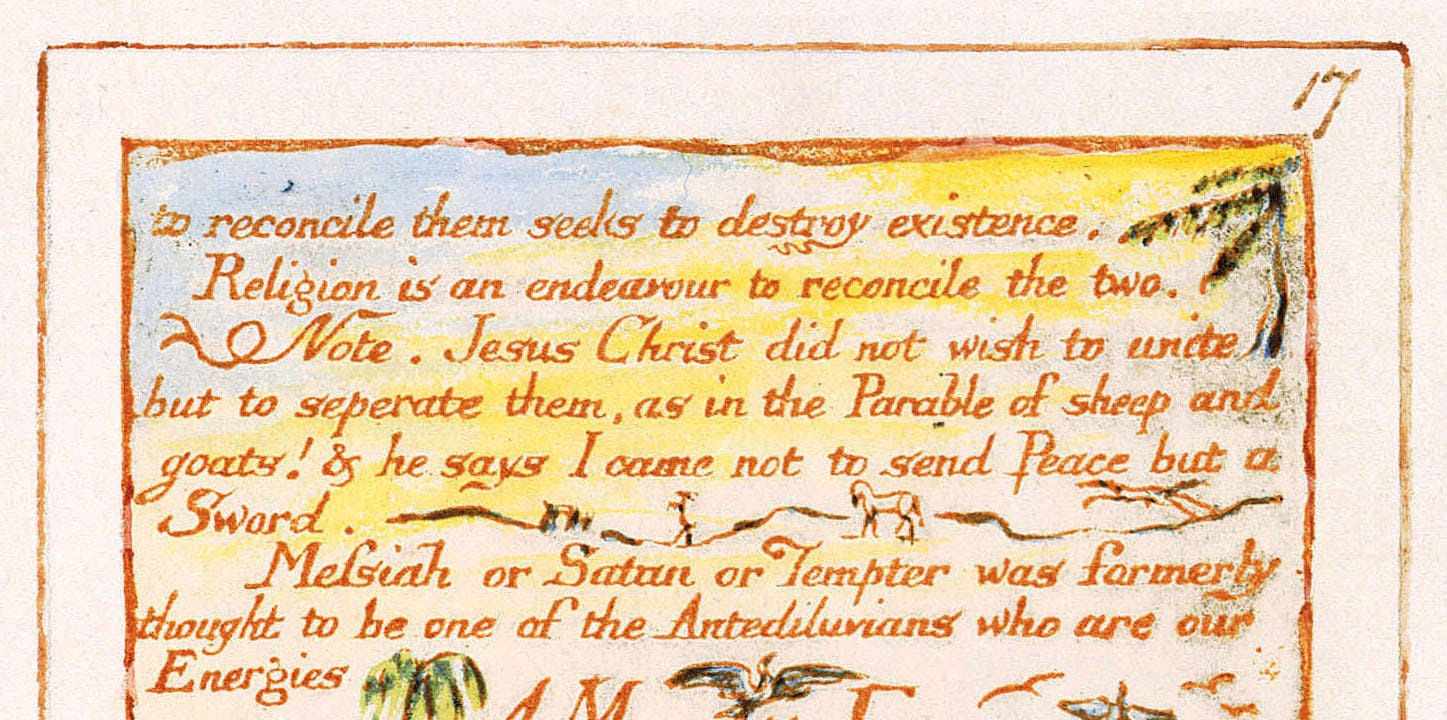 17
to reconcile them seeks to destroy existence.
Religion is an endeavour to reconcile the two.
Note. Jesus Christ did not wish to unite
but to seperate them, as in the Parable of sheep and
goats! & he says I came not to send Peace but a
Sword.
Meſsiah or Satan or Tempter was formerly
thought to be one of the Antediluvians who are our
Energies
A M